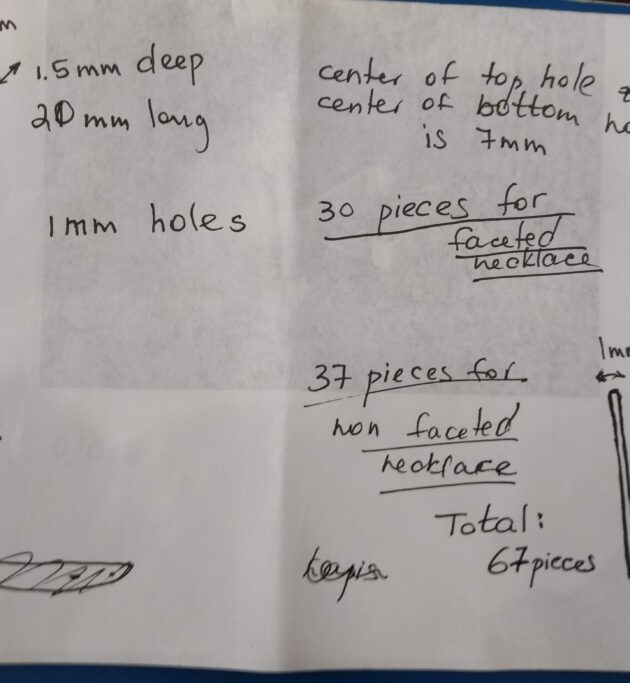 m
1.5mm deep
20mm long
1mm holes
center of top hole
center of bottom ho
is 7mm
30 pieces for
faceted
necklace
37 pieces for
non faceted
necklace
Total:
67 pieces
1mm